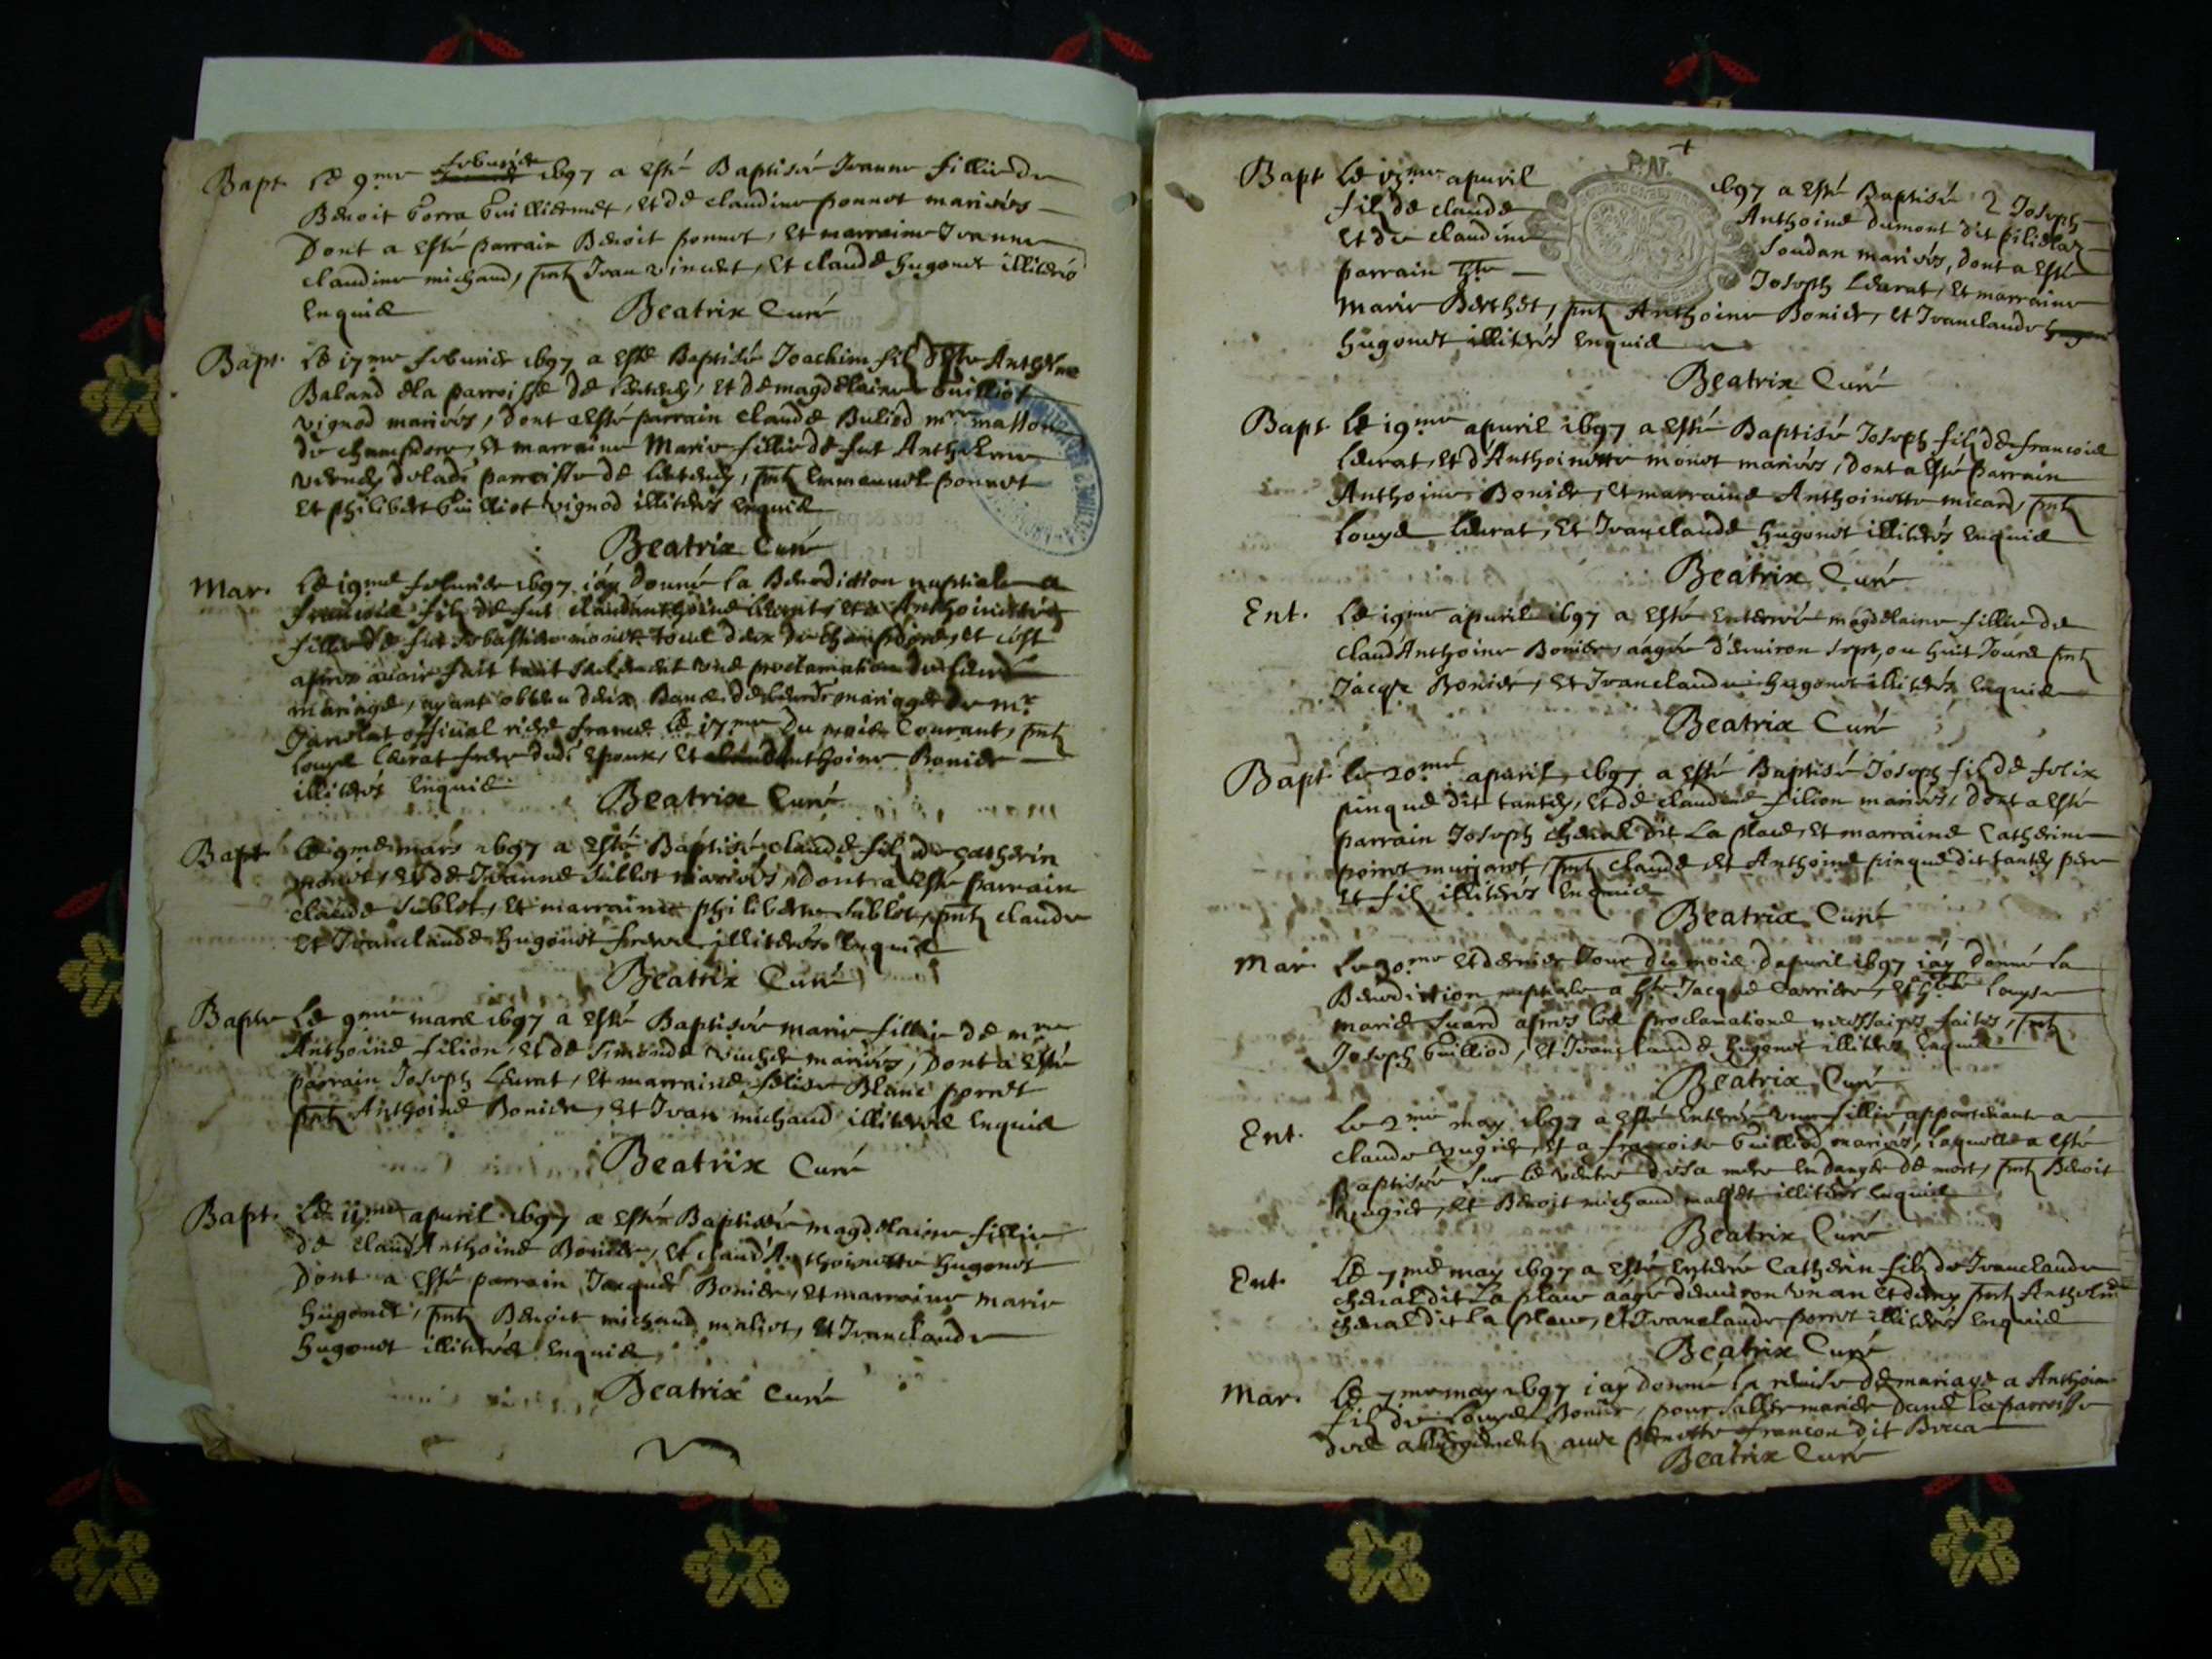 Bapt. Le 9me febvrier 1697 a esté Baptisée Jeanne fillie de
Benoit Gorra Guilliermet, et de claudine ponnet mariés
Dont a esté parrain Benoit ponnet, et marraine Jeanne
claudine michaud, pnt Jean vincent, et claude hugonet illiterés
enquis
Beatrix Curé
Bapt. Le 17me febvrier 1697 a esté Baptisé Joachim fil d'hble Anthelme
Baland de la parroisse de, et de magdelaine Guilliot
vignod mariés, dont a esté parrain claude Buliod mre masson
de champdore, et marraine Marie fillie de feu Anthelme
de ladi parroisse de, pnt Emmanuel ponnet
et philibert Guilliot vignod illiterés enquis
Beatrix Curé
Mar. Le 19me febvrier 1697 jay donné la Benediction nuptiale a
francois fil de feu claudanthoine Leurat, et a Anthoinette
fillie de feu sebastien monet tous deux de champdore, et cest
apres avoir fait tant seulement une proclamation de leur
mariage, ayant obtenu deux Bans de leurdt mariagge de mr
official riere france le 17me du mois Courant, pnt
Louys Leurat frere dudi espoux, et Anthoine Bonier
illiterés enquis
Beatrix Curé
Bapt. Le 9me mars 1697 a esté Baptisé claude fil de Catherin
monet, et de Jeanne Sublet mariés, dont a esté parrain
claude Sublet, et marraine philiberte Sublet, pnt claude
et Jeanclaude hugonet freres illiterés enquis
Beatrix Curé
Bapte Le 9me mars 1697 a esté Baptisée marie fillie de mre
Anthoine filion, et de Simonde mariés, dont a esté
parrain Joseph Leurat, et marraine felise Blanc perret
pnt Anthoine Bonier, et Jean michaud illiterés enquis
Beatrix Curé
Bapt. Le 11me apvril 1697 a esté Baptisée magdelaine fillie
de claud'Anthoine Bonier, et claud'Anthoinette hugonet
Dont a esté parrain Jacques Bonier, et marraine marie
hugonet, pnt Benoit michaud maliet, et Jeanclaude
hugonet illiterés enquis
Beatrix Curé
P:N.
2
Bapt Le 13me apvril 1697 a esté Baptisé Joseph
fil de claude Anthoine dumont dit
et de claudine Soudan mariés, dont a esté
parrain hble Joseph Leurat, et marraine
Marie Berthet, pnt Anthoine Bonier, et Jeanclaude
hugonet illiterés enquis
Beatrix Curé
Bapt. Le 19me apvril 1697 a esté Baptisé Joseph fil de francois
Leurat, et d'Anthoinette monet mariés, dont a esté parrain
Anthoine Bonier, et marraine Anthoinette micard, pnt
Louys Leurat, et Jeanclaude hugonet illiterés enquis
Beatrix Curé
Ent. Le 19me apvril 1697 a esté enterrée magdelaine fillie de
claud'Anthoine Bonier, aagée d'environ sept, ou huit Jours pnt
Jacqs Bonier, et Jeanclaude hugonet illiterés enquis
Beatrix Curé
Bapt Le 20me apvril 1697 a esté Baptisé Joseph fil de felix
pinque dit tantes, et de claudine filion mariés, dont a esté
parrain Joseph cheval dit La place, et marraine Catherine
poiret, pnt claude et Anthoine pinque dit tantes pere
et fil illiterés enquis
Beatrix Curé
Mar. Le 30me et dernier Jour du mois d'apvril 1697 jay donné la
Benediction nuptiale a hble Jacque Carrier, et hble Louyse
marie Suard apres les proclamations necessaires faites, pnt
Joseph Guilliod, et Jeanclaude hugonet illiterés enquis
Beatrix Curé
Ent. Le 2me may 1697 a esté enterrée une fillie appartenante a
claude, et a francoise Guilliod mariés, laquelle a esté
Baptisée sur le ventre de sa mere en danger de mort, pnt Benoit
et Benoit michaud maliet illiterés enquis
Beatrix Curé
Ent. Le 7me may 1697 a esté enterré Catherin fil de Jeanclaude
cheval dit La place aagé d'environ un an et demy pnt Anthelme
cheval dit La place, et Jeanclaude perret illiterés enquis
Beatrix Curé
Mar. Le 7me may 1697 jay donné la remise de mariage a Anthoine
fil de Louys Bonier, pour s'aller marier dans la parroisse
avec pernette francon dit Becca
Beatrix Curé